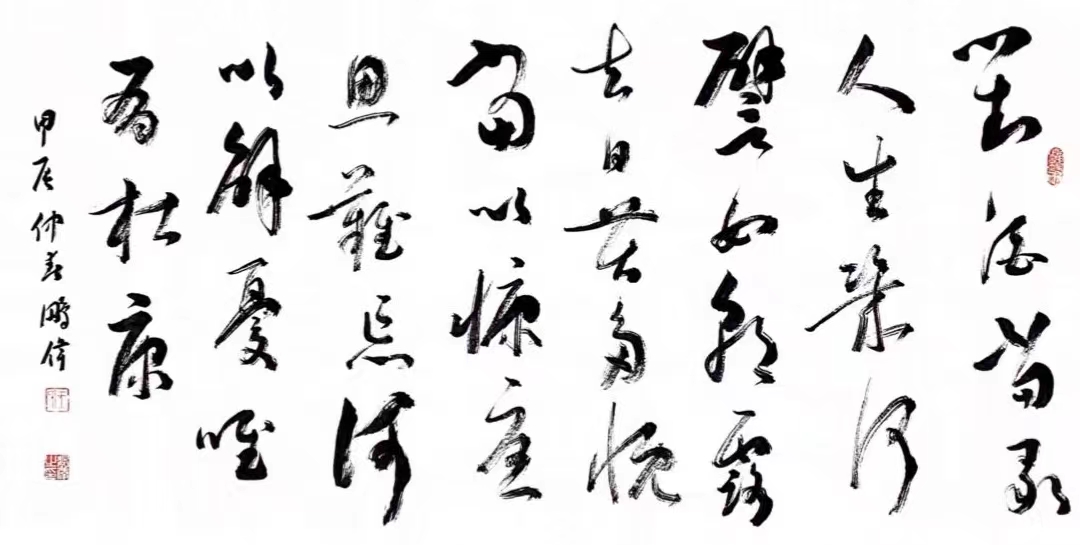 對酒當歌
人生幾何
譬如朝露
去日苦多慨
當以慷
思難忘何
以解憂唯
有杜康
甲辰仲春鵬偉